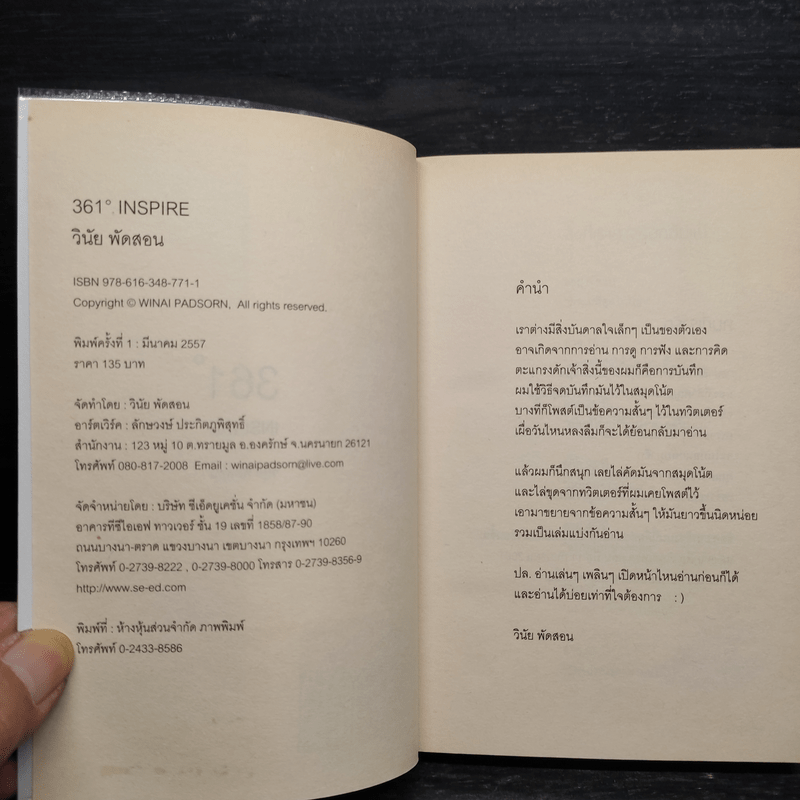 361° INSPIRE
วินัย พัดสอน
ISBN 978-616-348-771-1
Copyright © WINAI PADSORN, All rights reserved.
พิมพ์ครั้งที่ 1 : มีนาคม 2557
ราคา 135 บาท
จัดทำโดย : วินัย พัดสอน
อาร์ตเวิร์ค : ลักษวงษ์ ประกิตภูพิสุทธิ์
สำนักงาน : 123 หมู่ 10 ต.ทรายมูล อ.องครักษ์ จ.นครนายก 26121
โทรศัพท์ 080-817-2008 Email : winaipadsorn@live.com
จัดจำหน่ายโดย : บริษัท ซีเอ็ดยูเคชั่น จำกัด (มหาชน)
อาคารทีซีไอเอฟ ทาวเวอร์ ชั้น 19 เลขที่ 1858/87-90
ถนนบางนา-ตราด แขวงบางนา เขตบางนา กรุงเทพฯ 10260
โทรศัพท์ 0-2739-8222 , 0-2739-8000 โทรสาร 0-2739-8356-9
http://www.se-ed.com
พิมพ์ที่ : ห้างหุ้นส่วนจำกัด ภาพพิมพ์
โทรศัพท์ 0-2433-8586
คำนำ
เราต่างมีสิ่งบันดาลใจเล็กๆ เป็นของตัวเอง
อาจเกิดจากการอ่าน การดู การฟัง และการคิด
ตะแกรงดักเจ้าสิ่งนี้ของผมก็คือการบันทึก
ผมใช้วิธีจดบันทึกมันไว้ในสมุดโน้ต
บางทีก็โพสต์เป็นข้อความสั้นๆ ไว้ในทวิตเตอร์
เผื่อวันไหนหลงลืมก็จะได้ย้อนกลับมาอ่าน
แล้วผมก็นึกสนุก เลยไล่คัดมันจากสมุดโน้ต
และไล่ขุดจากทวิตเตอร์ที่ผมเคยโพสต์ไว้
เอามาขยายจากข้อความสั้นๆ ให้มันยาวขึ้นนิดหน่อย
รวมเป็นเล่มแบ่งกันอ่าน
ปล. อ่านเล่นๆ เพลินๆ เปิดหน้าไหนอ่านก่อนก็ได้
และอ่านได้บ่อยเท่าที่ใจต้องการ : )
วินัย พัดสอน